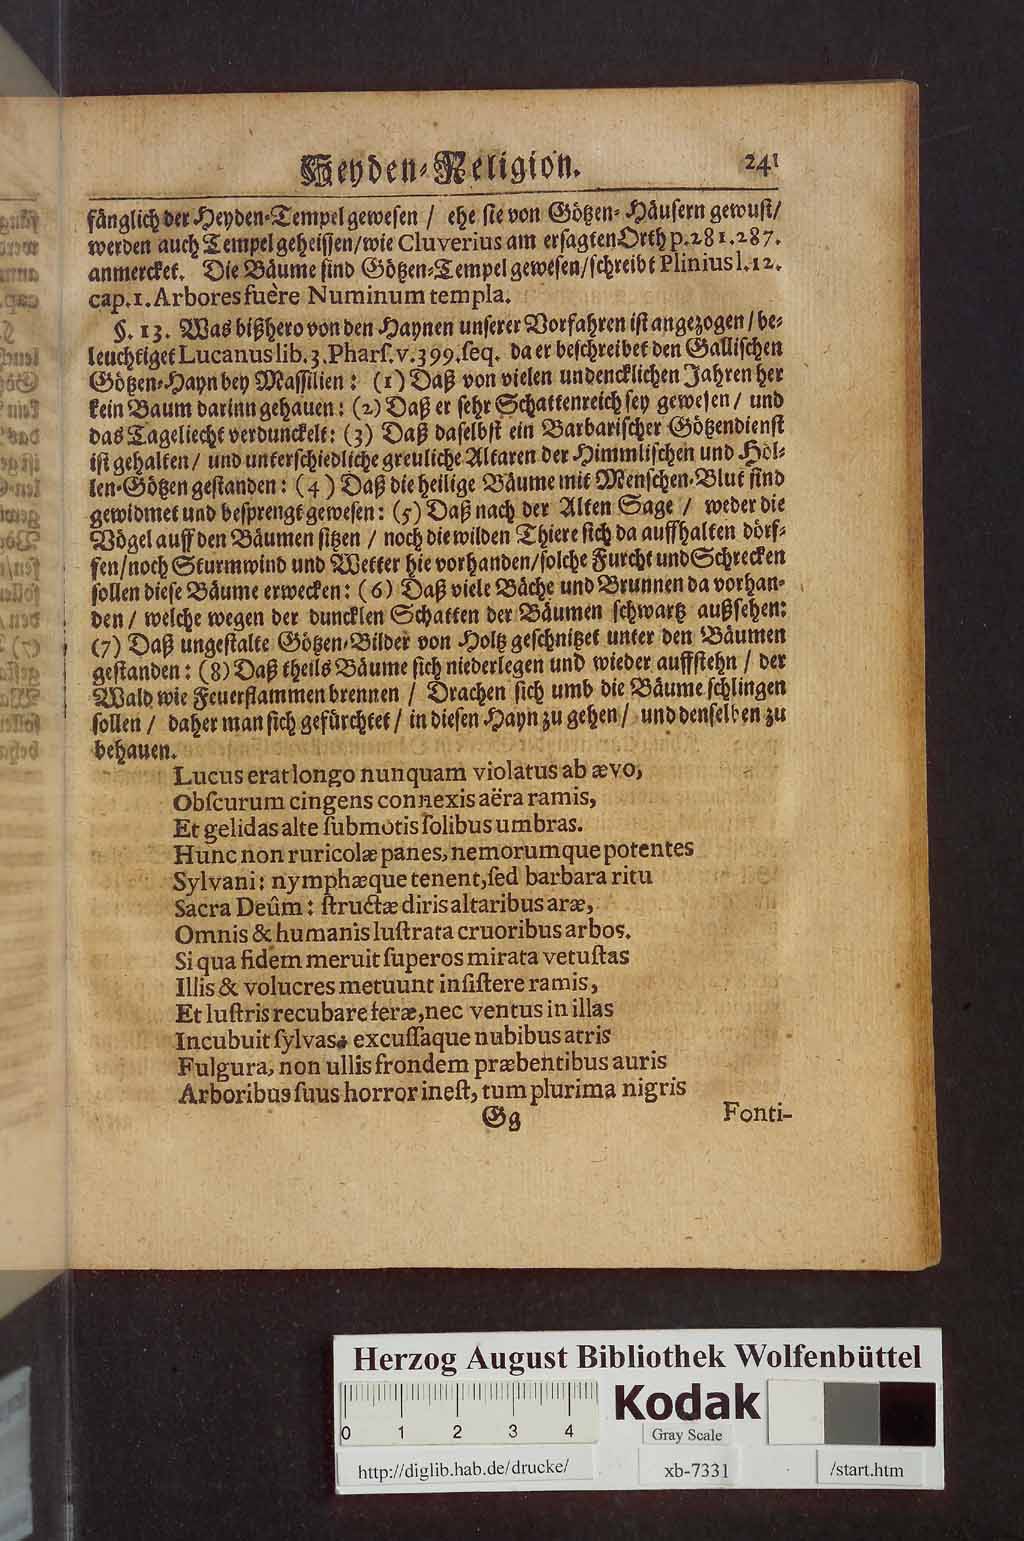 Heyden-Religion. 241
fånglich der Heyden-Tempel gewesen / ehe sie von Götzen-Häusern gewust/
werden auch Tempel geheissen/wie Cluverius am ersagten Orth p.281.287.
anmercket. Die Bäume sind Götzen-Tempel gewesen/schreibt Plinius l.12.
cap.1. Arbores fuêre Numinum templa.
§. 13. Was bißhero von den Haynen unserer Vorfahren ist angezogen / be-
leuchtiget Lucanus lib. 3. Pharſ. v. 399. ſeq. da er beschreibet den Gallischen
Götzen-Hayn bey Massilien: (1) Daß von vielen undencklichen Jahren her
kein Baum darinn gehauen: (2) Daß er sehr Schattenreich sey gewesen / und
das Tageliecht verdunckelt: (3) Daß daselbst ein Barbarischer Götzendienst
ist gehalten / und unterschiedliche greuliche Altaren der Himmlischen und Höl-
len-Götzen gestanden: (4) Daß die heilige Bäume mit Menschen-Blut sind
gewidmet und besprengt gewesen: (5) Daß nach der Alten Sage / weder die
Vögel auff den Bäumen sitzen / noch die wilden Thiere sich da auffhalten dörf-
fen/noch Sturmwind und Wetter hie vorhanden/solche Furcht und Schrecken
sollen diese Bäume erwecken: (6) Daß viele Bäche und Brunnen da vorhan-
den / welche wegen der duncklen Schatten der Bäumen schwartz außsehen:
(7) Daß ungestalte Götzen-Bilder von Holtz geschnitzet unter den Bäumen
gestanden: (8) Daß theils Bäume sich niederlegen und wieder auffstehn / der
Wald wie Feuerflammen brennen / Drachen sich umb die Bäume schlingen
sollen / daher man sich gefürchtet / in diesen Hayn zu gehen / und denselben zu
behauen.
Lucus erat longo nunquam violatus ab ævo,
Obſcurum cingens connexis aëra ramis,
Et gelidas alte ſubmotis ſolibus umbras.
Hunc non ruricolæ panes, nemorumque potentes
Sylvani: nymphæque tenent, ſed barbara ritu
Sacra Deûm: ſtructæ diris altaribus aræ,
Omnis & humanis luſtrata cruoribus arbos.
Si qua fidem meruit ſuperos mirata vetuſtas
Illis & volucres metuunt inſiſtere ramis,
Et luſtris recubare feræ, nec ventus in illas
Incubuit ſylvas, excuſſaque nubibus atris
Fulgura, non ullis frondem præbentibus auris
Arboribus ſuus horror ineſt, tum plurima nigris
Gg Fonti-
Herzog August Bibliothek Wolfenbüttel
Kodak
0 1 2 3 4
Gray Scale
http://diglib.hab.de/drucke/ xb-7331 /start.htm